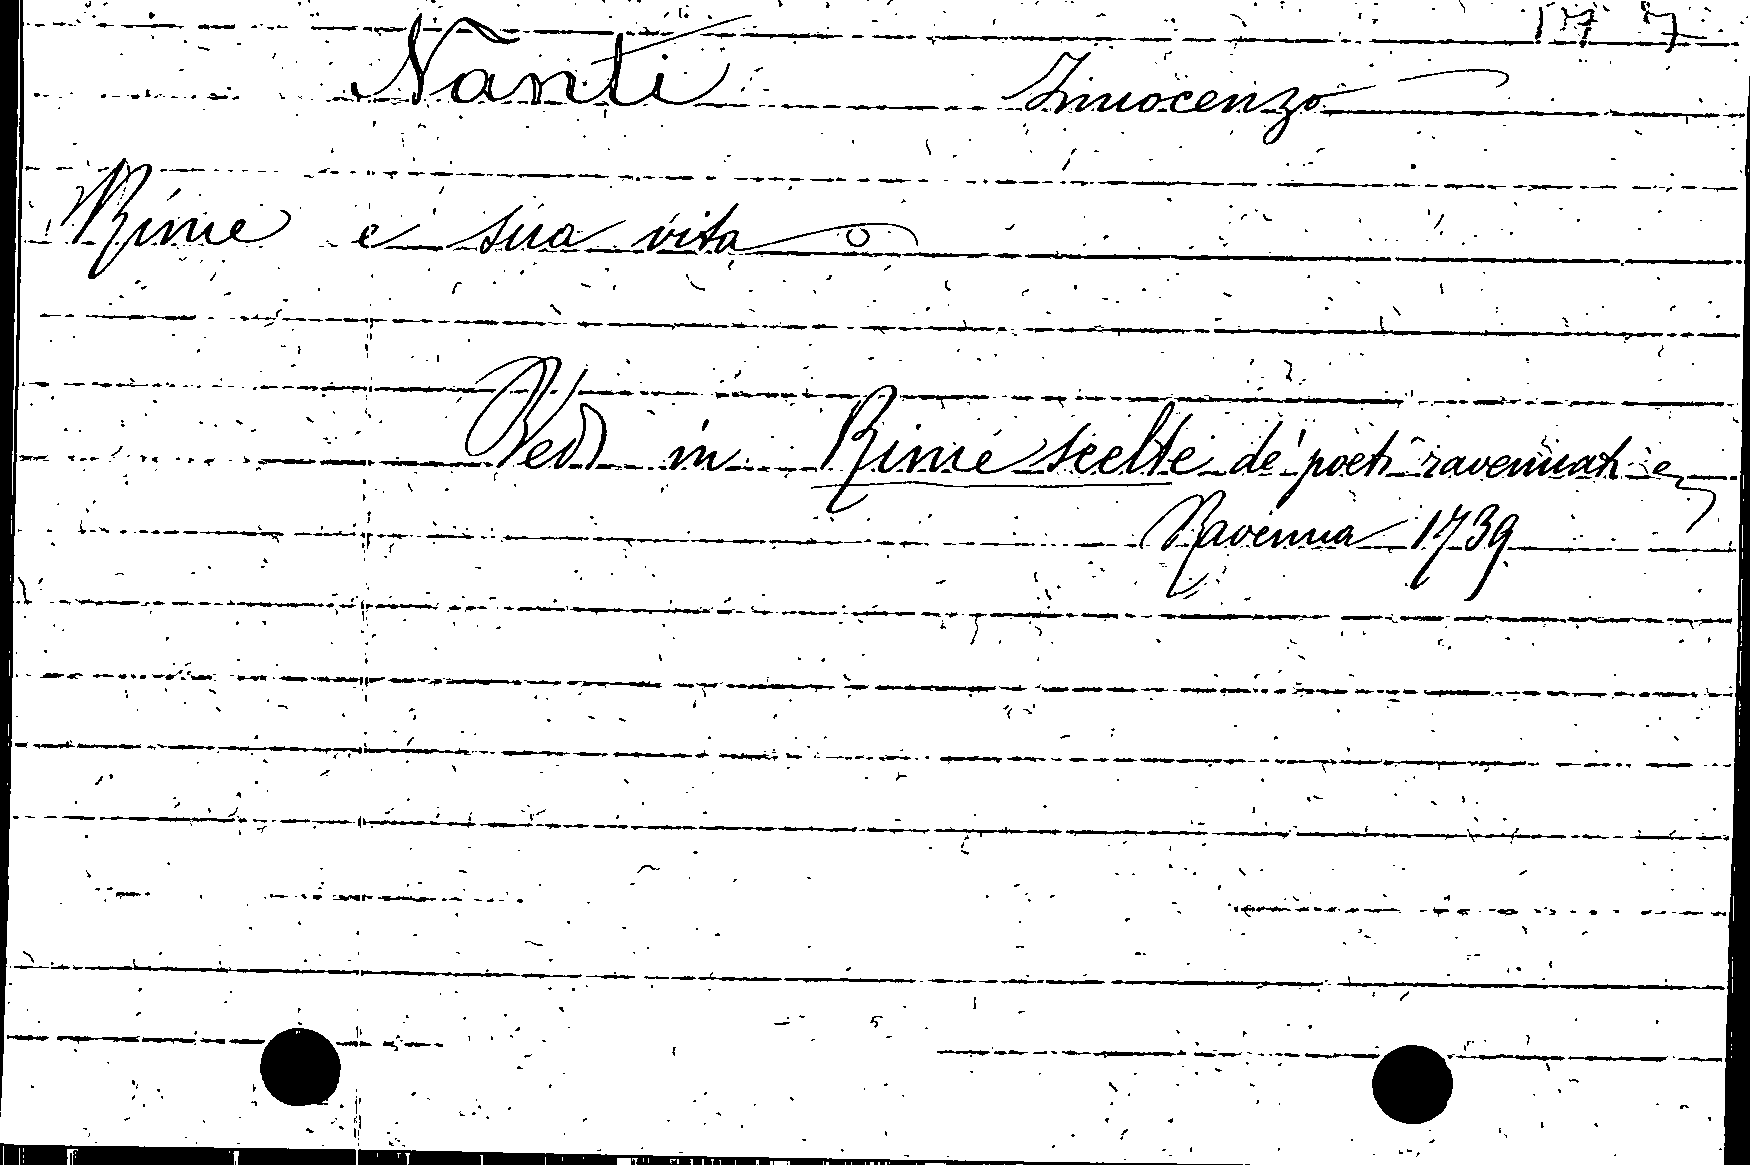 Nanti Innocenzo
Rime e sua vita
Vedi in Rime scelte de' poeti ravennati e
Ravenna 1739